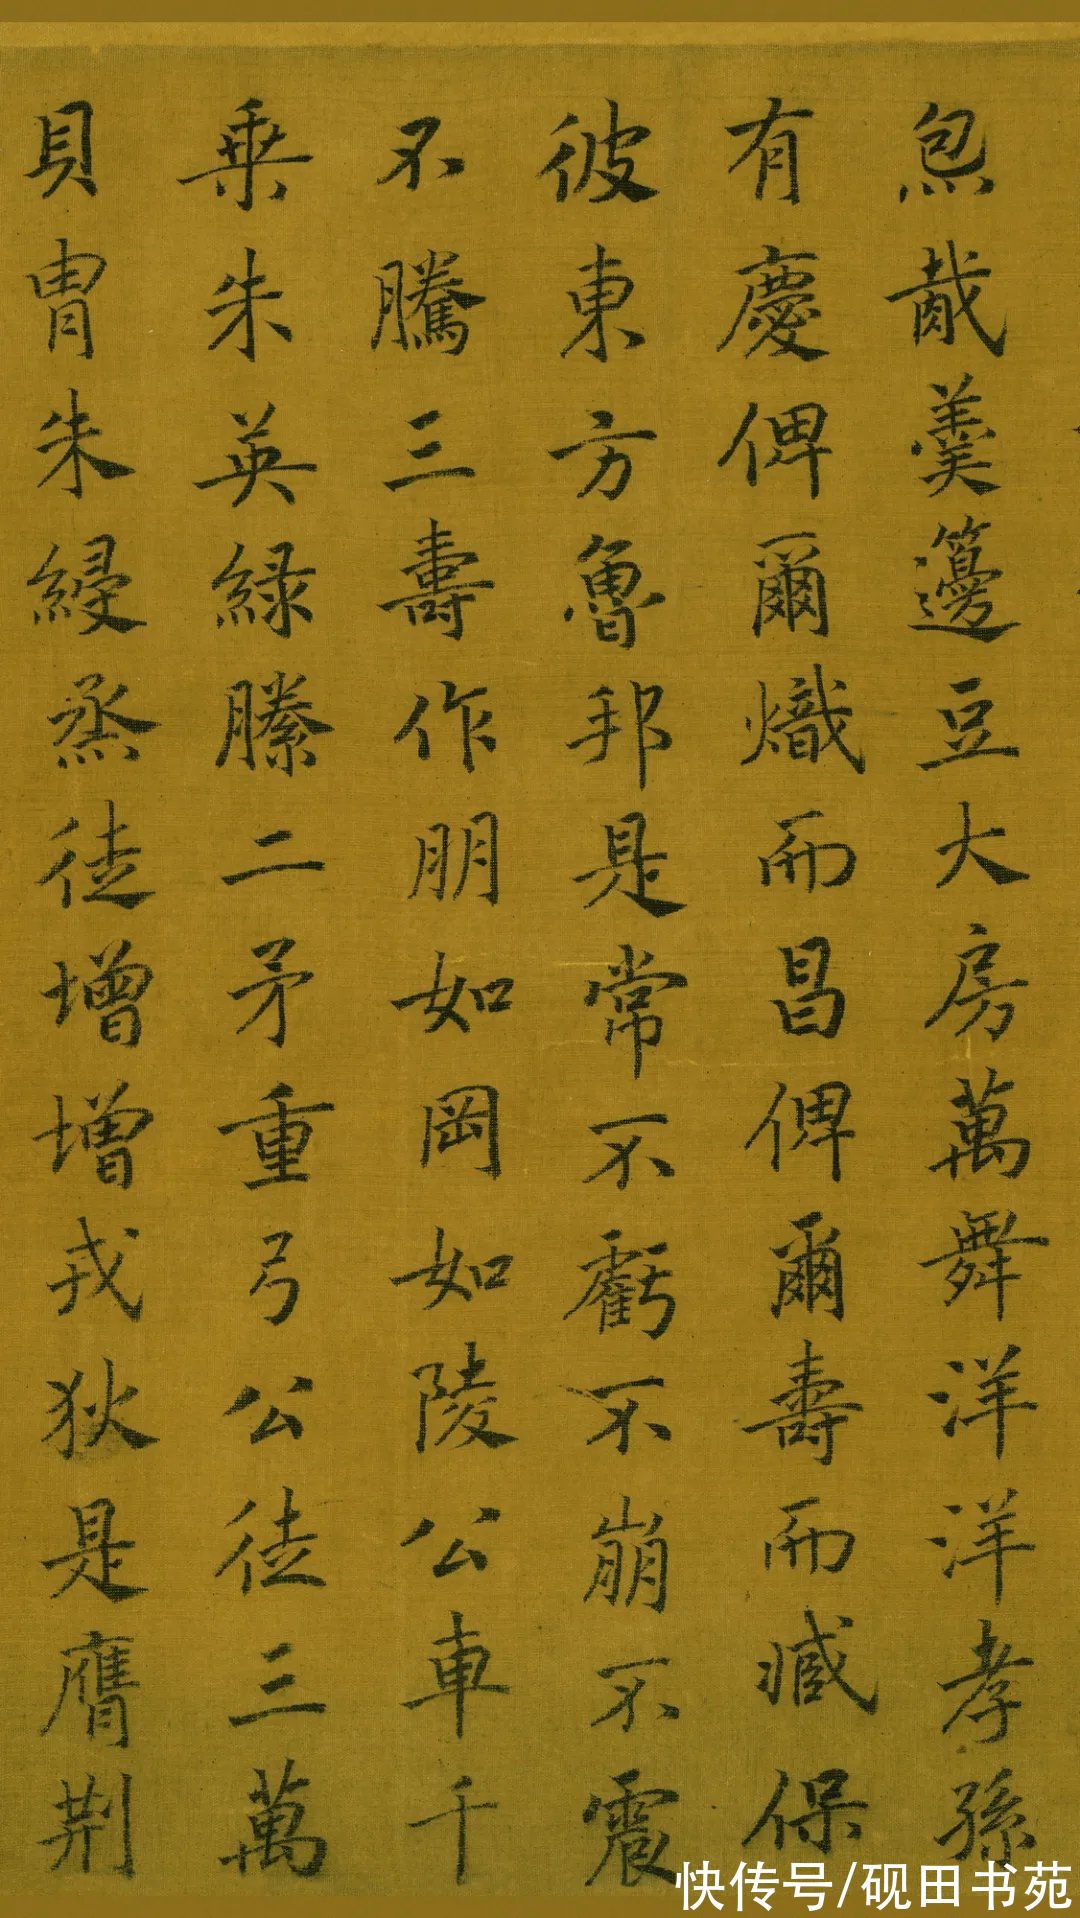 炰胾羹籩豆大房萬舞洋洋孝孫
有慶俾爾熾而昌俾爾壽而臧保
彼東方魯邦是常不虧不崩不震
不騰三壽作朋如岡如陵公車千
乗朱英綠縢二矛重弓公徒三萬
貝冑朱綅烝徒增增戎狄是膺荆
快传号/砚田书苑